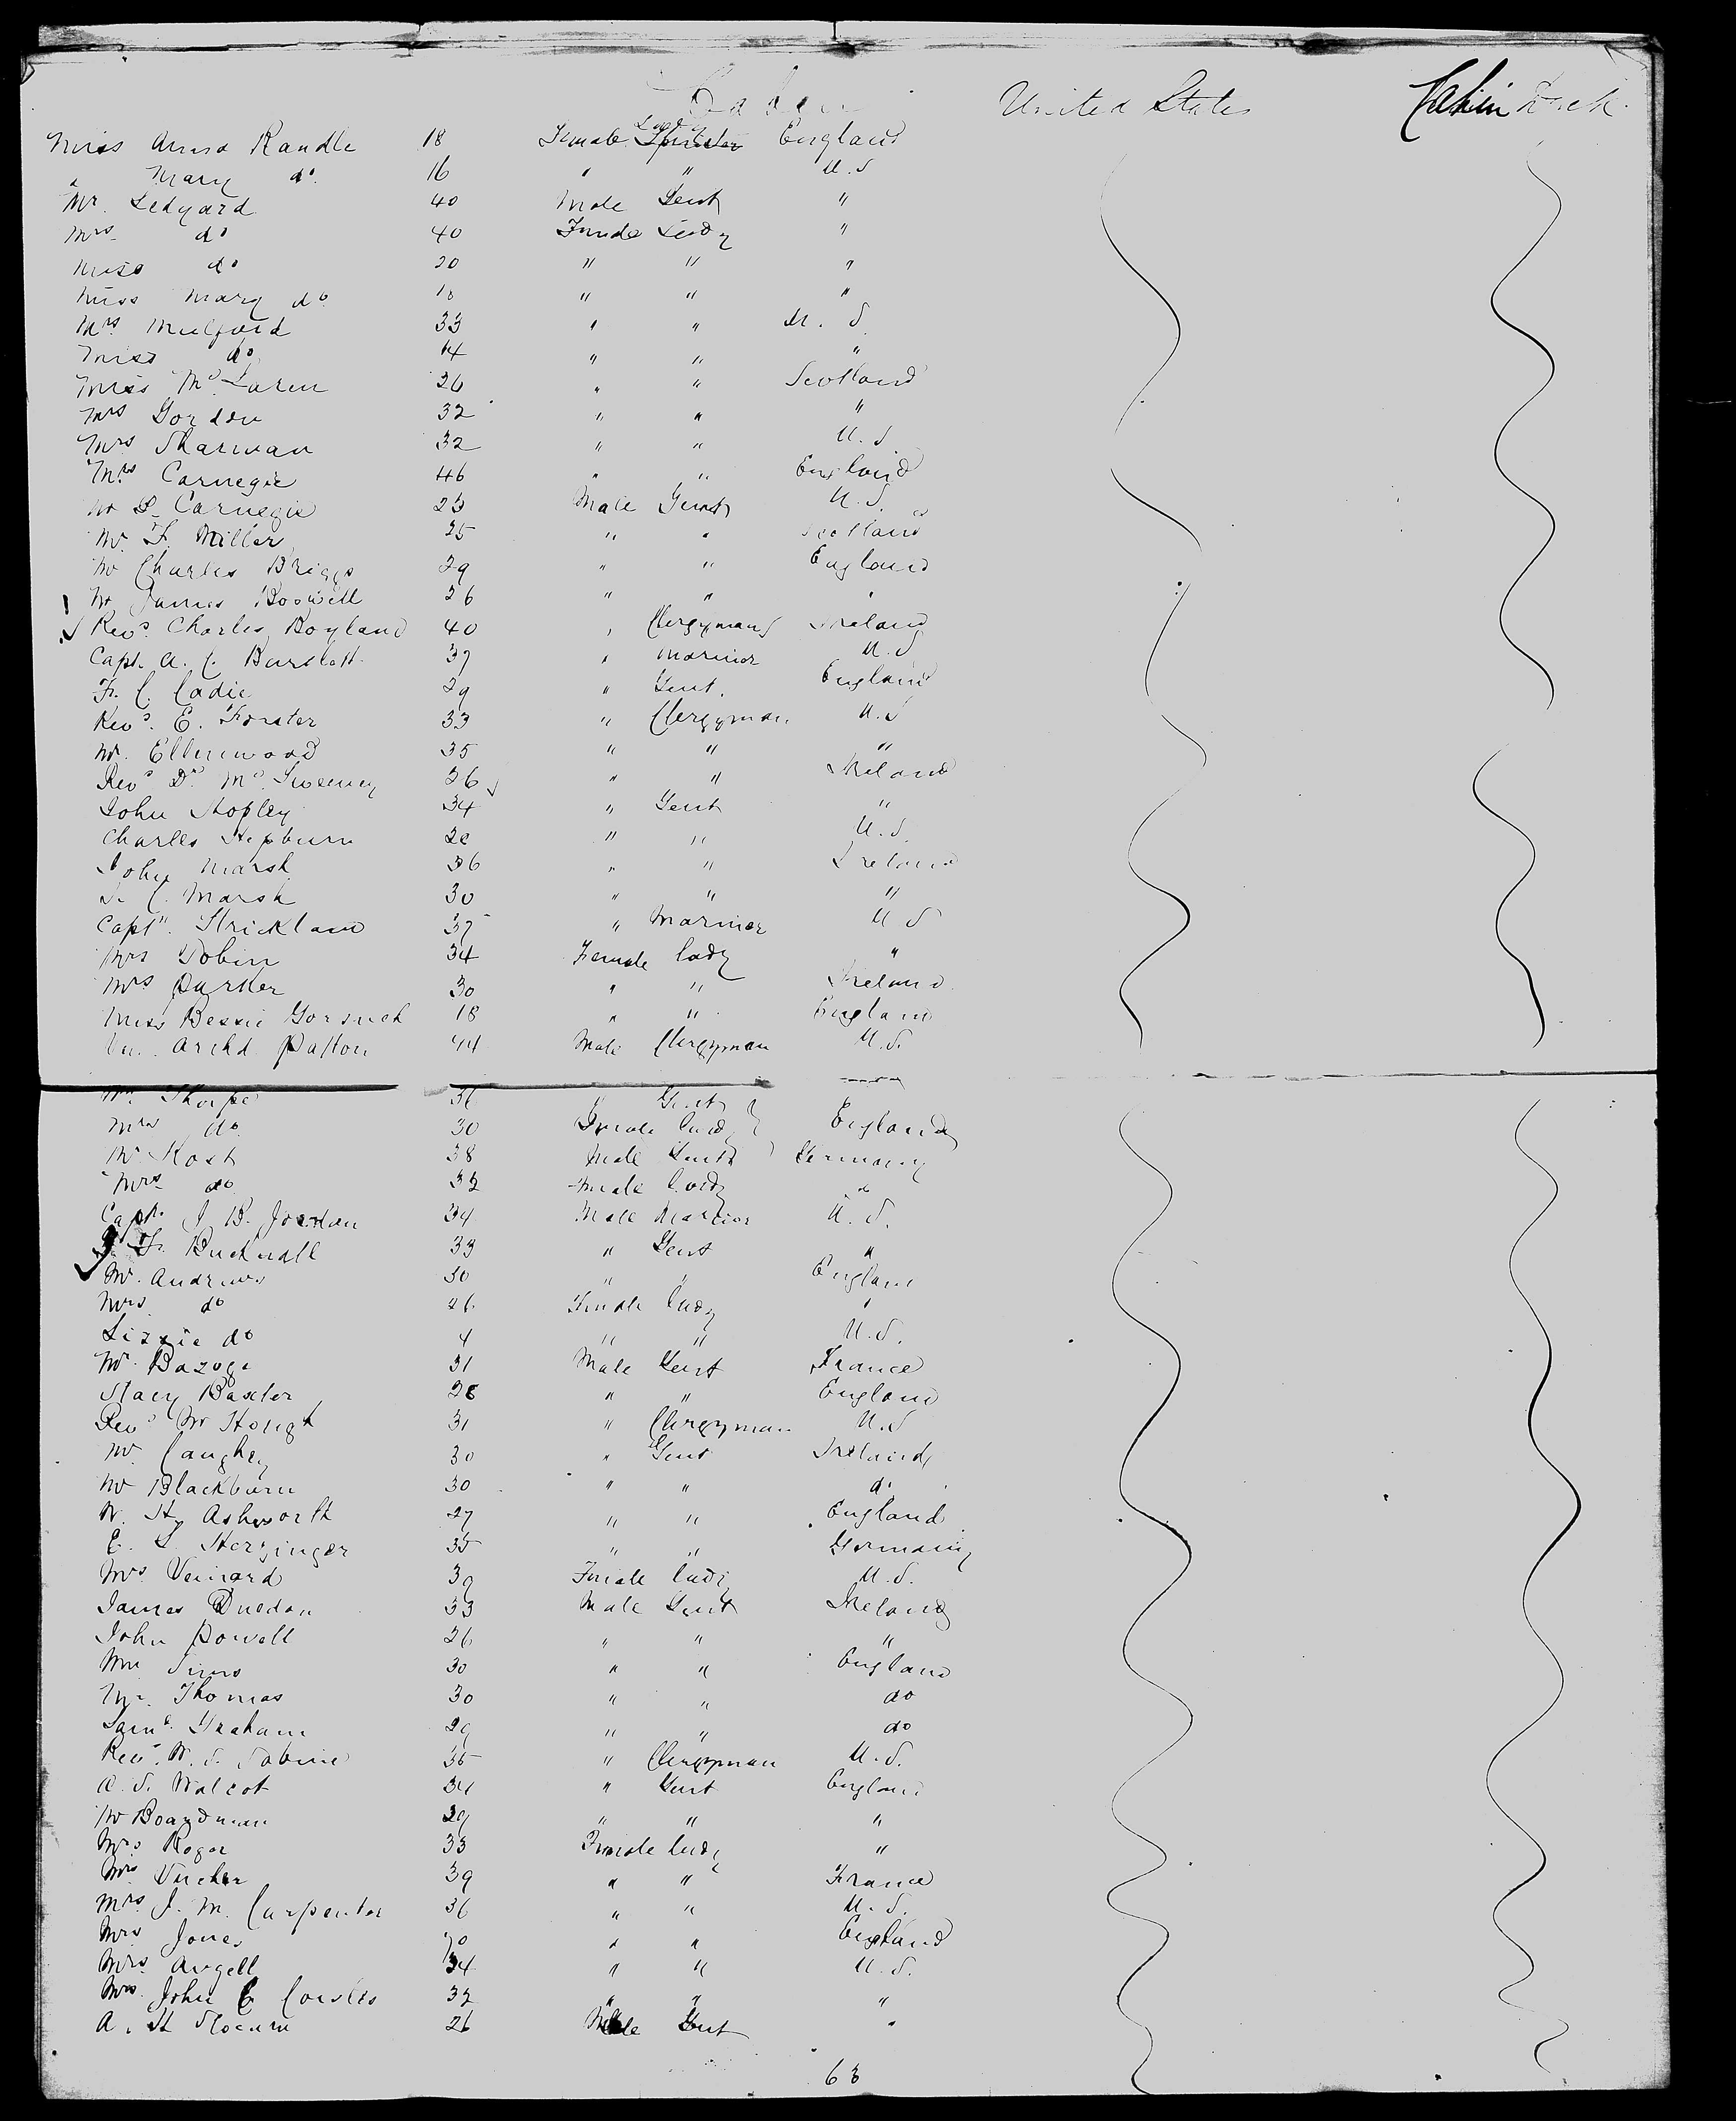 Cabin United States Cabin Deck
Miss Anna Randle 18 Female Lady Spinster England
" Mary do 16 " " U.S
Mr. Ledyard 40 Male Gent "
Mrs do 40 Female Lady "
Miss do 20 " " "
Miss Mary do 18 " " "
Mrs Mulford 33 " " U.S.
Miss do 14 " " "
Miss McLaren 26 " " Scotland
Mrs Gordon 32 " " "
Mrs Sharman 32 " " U.S
Mrs Carnegie 46 " " England
Mr L. Carnegie 23 Male Gent U.S.
Mr. F. Miller 25 " " Scotland
Mr Charles Briggs 29 " " England
Mr James Boswell 26 " " "
Revd. Charles Boyland 40 " Clergyman Ireland
Capt. A. C. Bartlett 37 " Mariner U.S
F. C. Cadie 29 " Gent. England
Revd. E. Forster 33 " Clergyman U.S
Mr. Ellenwood 35 " " "
Revd Dr McSweeney 26 " " Ireland
John Shopley 34 " Gent "
Charles Hepburn 28 " " U.S.
John Marsh 36 " " Ireland
S. C. Marsh 30 " " "
Captn. Strickland 37 " Mariner U S
Mrs Tobin 34 Female lady "
Mrs Parker 30 " " Ireland
Miss Bessie Gorsuch 18 " " England
Ven. Archd. Patton 44 Male Clergyman U.S.
Mr. Thorpe 36 " Gent
Mrs do 30 Female lady England
Mr Kost 38 Male Gent Germany
Mrs do 32 Female lady "
Capt. J B. Jordan 34 Male Mariner U.S.
F. Bucknall 33 " Gent "
Mr. Andrews 30 " " England
Mrs do 26 Female lady "
Lizzie do 4 " " U.S.
Mr. Bazoge 31 Male Gent France
Stacy Baxter 28 " " England
Revd Mr Hough 31 " Clergyman U.S
Mr. Caughey 30 " Gent Ireland
Mr Blackburn 30 " " do
W. Hy Ashworth 27 " " England
E. L. Herzinger 35 " " Germany
Mrs Venard 39 Female lady U.S.
James Duedan 33 Male Gent Ireland
John Powell 26 " " "
Mr Sims 30 " " England
Mr. Thomas 30 " " do
Saml. Graham 29 " " do
Revd. W. S. Sabine 35 " Clergyman U.S.
A. S. Walcot 34 " Gent England
Mr Boardman 29 " " "
Mrs Roger 33 Female lady "
Mrs Tucker 39 " " France
Mrs. J. M. Carpenter 36 " " U.S.
Mrs Jones 70 " " England
Mrs. Angell 34 " " U.S.
Mrs. John C 32 " " "
A. H Slocum 26 Male Gent "
63